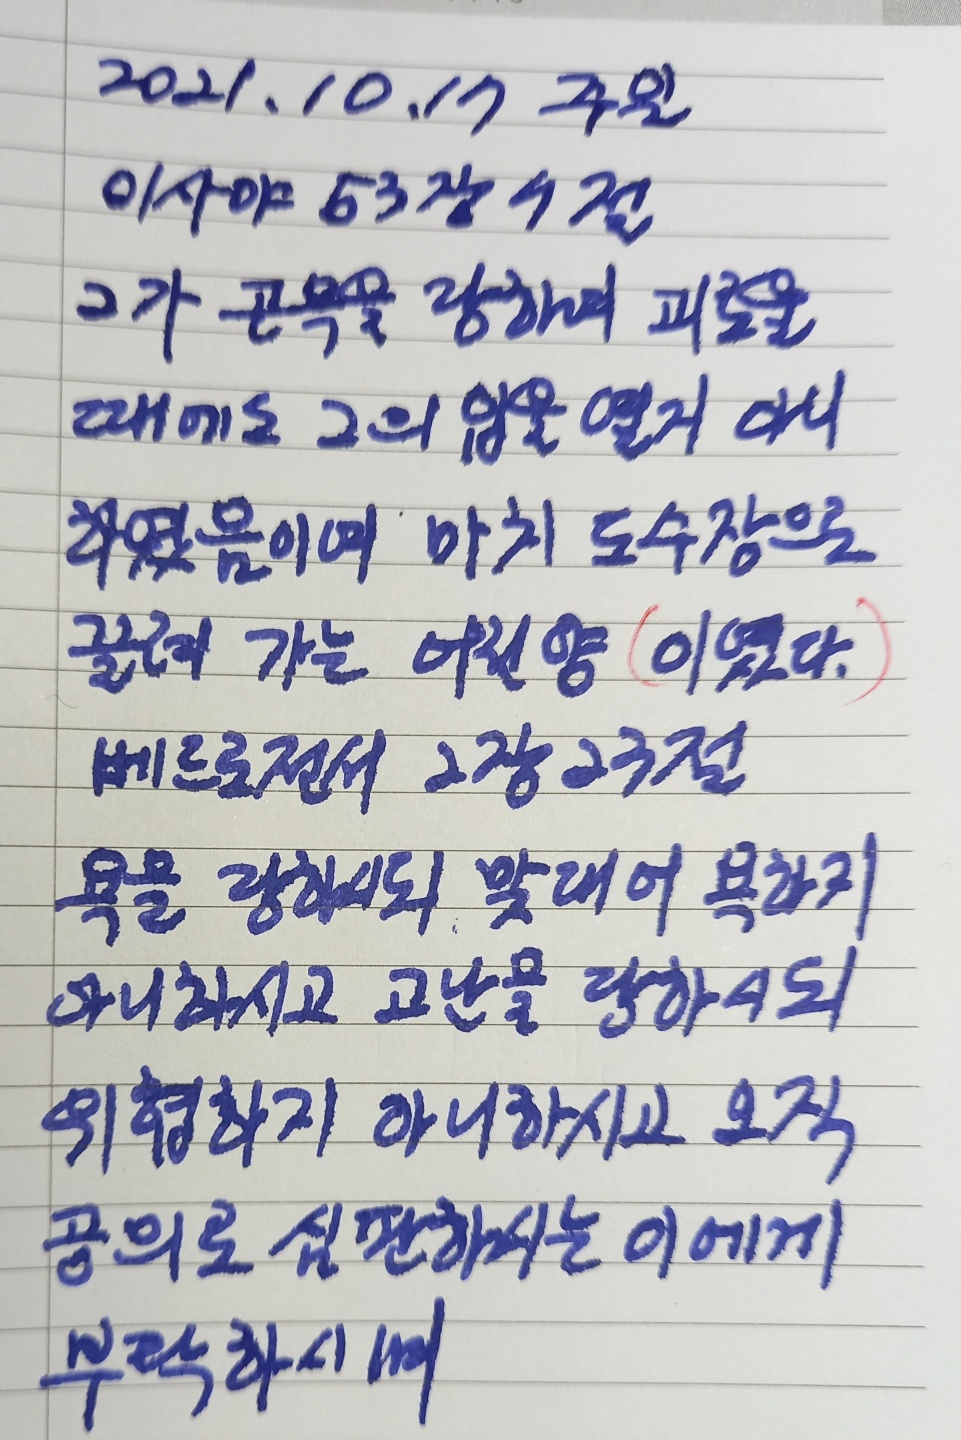 2021.10.17 주일
이사야 53장 7절
그가 곤욕을 당하며 괴로울
때에도 그의 입을 열지 아니
하였음이며 마치 도수장으로
끌려 가는 어린양 (이였다.)
베드로전서 2장 23절
욕을 당하시되 맞대어 욕하지
아니하시고 고난을 당하시되
위협하지 아니하시고 오직
공의로 심판하시는 이에게
부탁하시며